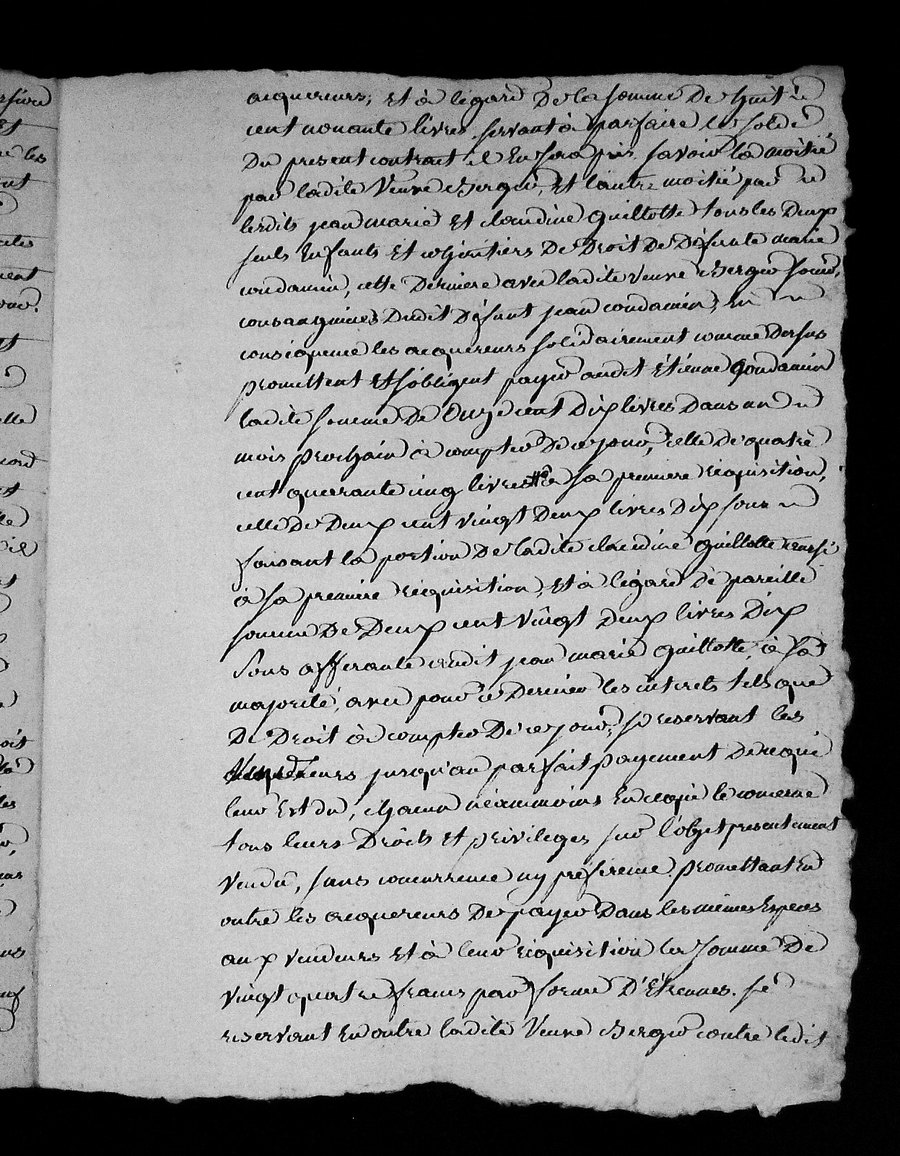 acquereurs, et à légard de la somme de huit
cent nonante livres servant à parfaire le solde
du present contrat il en sera pris savoir la moitié
par ladite veuve Berger, et lautre moitié par
lesdits jean marie et claudine Guillotte tous les deux
seuls enfants et cohéritiers de droit de défunte marie
condamin, cette derniere avec ladite veuve Berger sœurs
consanguines dudit défunt jean condamin, en
consequence les acquereurs solidairement comme dessus
promettent et sobligent payer audit étienne Condamin
ladite somme de onze cent dix livres dans un
mois prochain à compter de ce jour, celle de quatre
cent quarante cinq livres à sa premiere réquisition,
celle de deux cent vingt deux livres dix sous
faisant la portion de ladite claudine Guillotte aussi
à sa premiere réquisition, et à légard de pareille
somme de deux cent vingt deux livres dix
sous afferante audit jean marie Guillotte, à sa
majorité, avec pour ce dernier les interets tels que
de droit à compter de ce jour, se reservant les
vendeurs jusqu'au parfait payement de ce qui
leur est du, chacun néanmoins en ce qui le concerne
tous leurs droits et privileges sur l'objet presentement
vendu, sans concurrence ny préférence. promettant en
outre les acquereurs de payer dans les mêmes especes
aux vendeurs et à leur réquisition la somme de
vingt quatre francs par forme d'Étrennes. se
reservant en outre ladite veuve Berger contre ledit